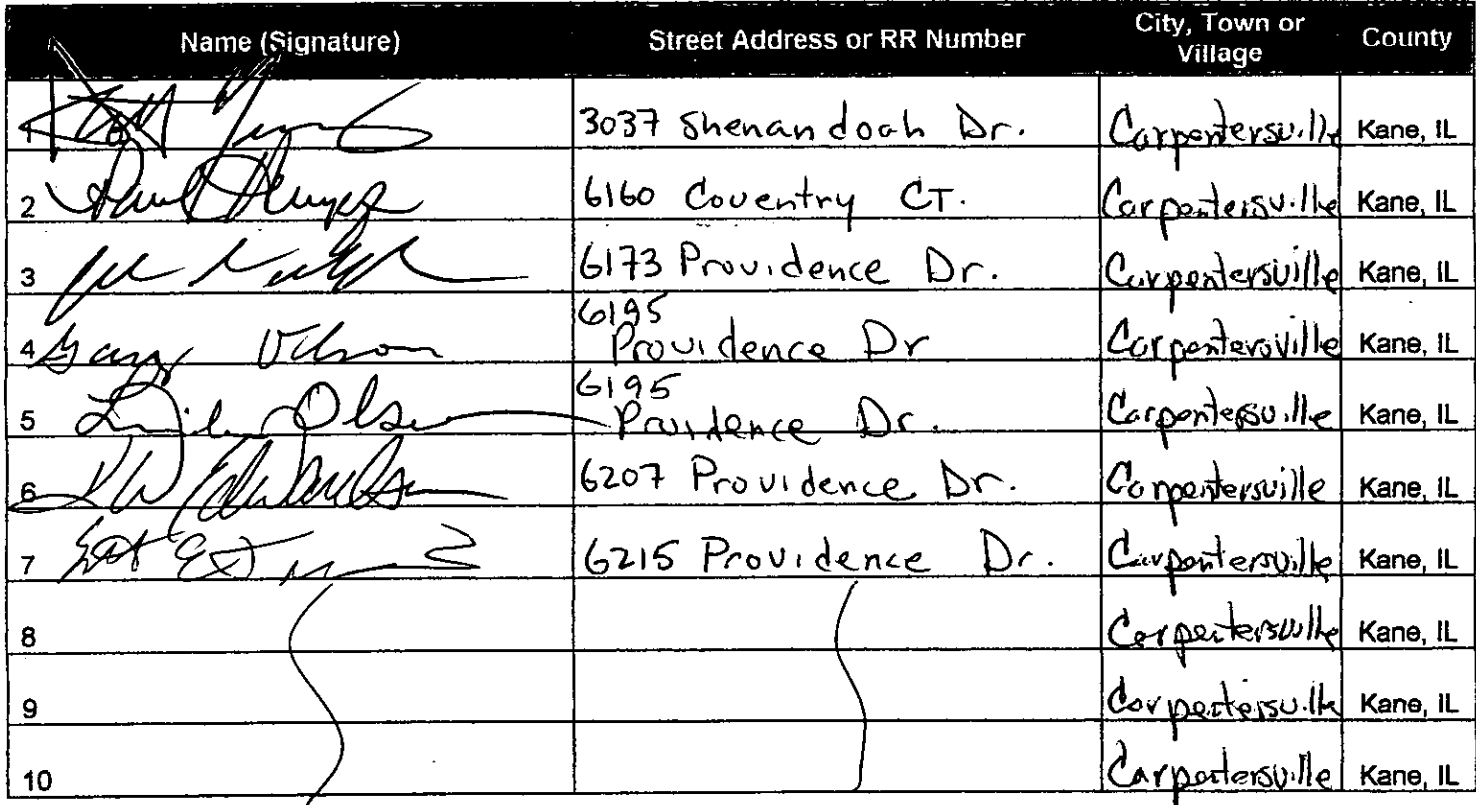 Name (Signature) Street Address or RR Number City, Town or Village County
3037 Shenandoah Dr. Carpentersville Kane, IL
2 6160 Coventry CT. Carpentersville Kane, IL
3 6173 Providence Dr. Carpentersville Kane, IL
6195
4 Gary Olson Providence Dr Carpentersville Kane, IL
6195
5 Olsen Providence Dr. Carpentersville Kane, IL
6 6207 Providence Dr. Carpentersville Kane, IL
7 6215 Providence Dr. Carpentersville Kane, IL
8 Carpentersville Kane, IL
9 Carpentersville Kane, IL
10 Carpentersville Kane, IL